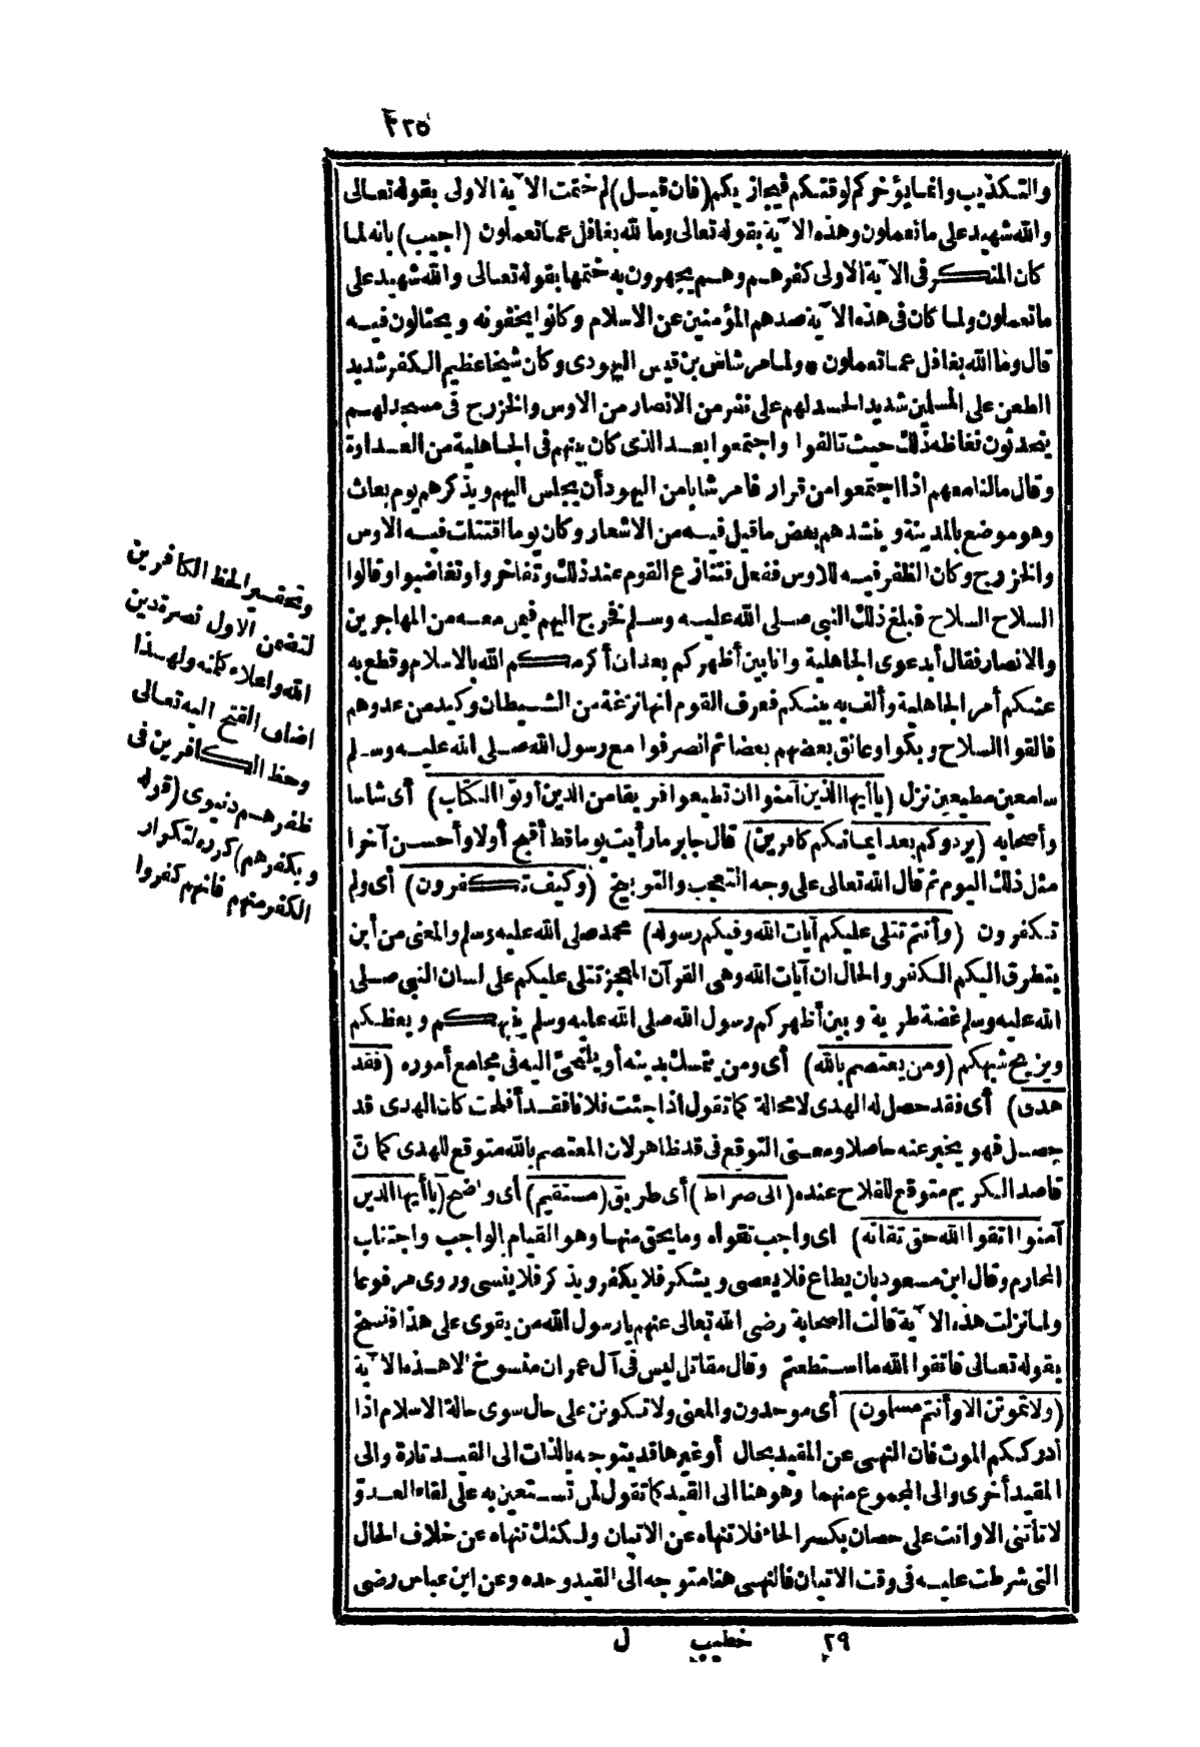 ٢٢٥
والتكذيب وانما يؤخركم لوقتكم فيجازيكم (فان قيل) لم ختمت الآية الاولى بقوله تعالى
والله شهيد على ما تعملون وهذه الآية بقوله تعالى وما الله بغافل عما تعملون (اجيب) بانه لما
كان المنكر فى الآية الاولى كفرهم وهم يجهرون به ختمها بقوله تعالى والله شهيد على
ما تعملون ولما كان فى هذه الآية صدهم المؤمنين عن الاسلام وكانوا يخفونه ويحتالون فيه
قال وما الله بغافل عما تعملون * ولما مر شاش بن قيس اليهودى وكان شيخا عظيم الكفر شديد
الطعن على المسلمين شديد الحسد لهم على نفر من الانصار من الاوس والخزرج فى مسجد لهم
يتحدثون فغاظه ذلك حيث تالفوا واجتمعوا بعد الذى كان بينهم فى الجاهلية من العداوة
وقال مالنا معهم اذا اجتمعوا من قرار فامر شابا من اليهود أن يجلس اليهم ويذكرهم يوم بعاث
وهو موضع بالمدينة وينشدهم بعض ما قيل فيه من الاشعار وكان يوما اقتتلت فيه الاوس
والخزرج وكان الظفر فيه للاوس ففعل فتنازع القوم عند ذلك وتفاخروا وتغاضبوا وقالوا
السلاح السلاح فبلغ ذلك النبى صلى الله عليه وسلم فخرج اليهم فيمن معه من المهاجرين
والانصار فقال أبدعوى الجاهلية وانا بين أظهركم بعد ان أكرمكم الله بالاسلام وقطع به
عنكم أمر الجاهلية وألف به بينكم فعرف القوم انها نزغة من الشيطان وكيد من عدوهم
فالقوا السلاح وبكوا وعانق بعضهم بعضا ثم انصرفوا مع رسول الله صلى الله عليه وسلم
سامعين مطيعين نزل (يا أيها الذين آمنوا ان تطيعوا فريقا من الذين أوتوا الكتاب) أى شاسا
وأصحابه (يردوكم بعد ايمانكم كافرين) قال جابر ما رأيت يوما قط أقبح أولا وأحسن آخرا
مثل ذلك اليوم ثم قال الله تعالى على وجه التعجب والتوبيخ (وكيف تكفرون) أى ولم
تكفرون (وأنتم تتلى عليكم آيات الله وفيكم رسوله) محمد صلى الله عليه وسلم والمعنى من أين
يتطرق اليكم الكفر والحال ان آيات الله وهى القرآن المعجز تتلى عليكم على لسان النبى صلى
الله عليه وسلم غضة طرية وبين أظهركم رسول الله صلى الله عليه وسلم ينبهكم ويعظكم
ويزيح شبهكم (ومن يعتصم بالله) أى ومن يتمسك بدينه أو يلتجئ اليه فى مجامع أموره (فقد
هدى) أى فقد حصل له الهدى لا محالة كما تقول اذا جئت فلانا فقد أفلحت كان الهدى قد
حصل فهو يخبر عنه حاصلا ومعنى التوقع فى قد ظاهر لان المعتصم بالله متوقع للهدى كما ان
قاصد الكريم متوقع للفلاح عنده (الى صراط) أى طريق (مستقيم) أى واضح (يا أيها الذين
آمنوا اتقوا الله حق تقاته) اى واجب تقواه وما يحق منها وهو القيام بالواجب واجتناب
المحارم وقال ابن مسعود بان يطاع فلا يعصى ويشكر فلا يكفر ويذكر فلا ينسى وروى مرفوعا
ولما نزلت هذه الآية قالت الصحابة رضى الله تعالى عنهم يا رسول الله من يقوى على هذا فنسخ
بقوله تعالى فاتقوا الله ما استطعتم وقال مقاتل ليس فى آل عمران منسوخ الا هذه الآية
(ولا تموتن الا وأنتم مسلمون) أى موحدون والمعنى ولا تكونن على حال سوى حالة الاسلام اذا
أدرككم الموت فان النهى عن المقيد بحال أو غيرها قد يتوجه بالذات الى القيد تارة والى
المقيد أخرى والى المجموع منهما وهو هنا الى القيد كما تقول لمن تستعين به على لقاء العدو
لا تأتنى الا وانت على حصان بكسر الحاء فلا تنهاه عن الاتيان ولكنك تنهاه عن خلاف الحال
التى شرطت عليه فى وقت الاتيان فالنهى هنا متوجه الى القيد وحده وعن ابن عباس رضى
وتحقير الحظ الكافرين
لتضمن الاول نصرة دين
الله واعلاء كلمته ولهذا
اضاف الفتح اليه تعالى
وحظ الكافرين فى
ظفرهم دنيوى (قوله
وبكفرهم) كرره لتكرار
الكفر منهم فانهم كفروا
٢٩ خطيب ل